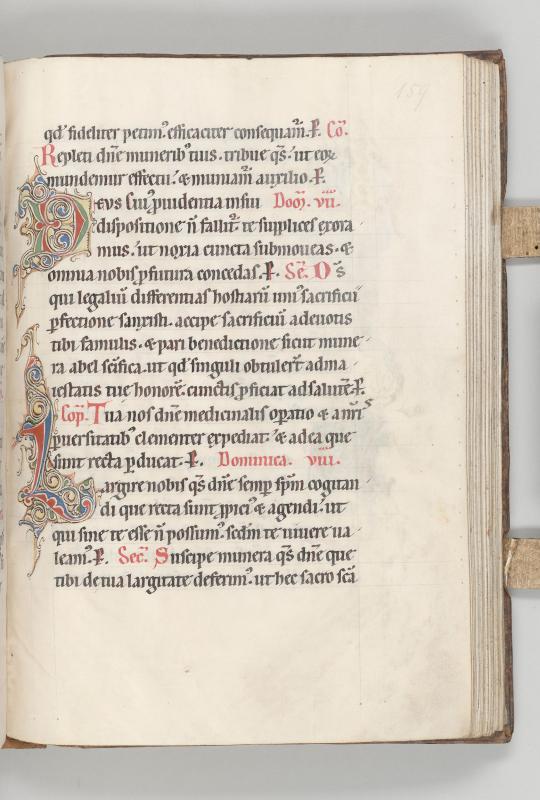 159
qd' fideliter petim' efficaciter consequam̃. P. Cō.
Repleti dñe munerib' tuis. tribue q̃s. ut eoꝝ
mundemur effectu. & muniam̃ auxilio. P.
Deus cui' prouidentia in sui Dom̃. vii.
dispositione ñ fallit̃. te supplices exora
mus. ut noxia cuncta submoueas. &
omnia nobis ꝓfutura concedas. P. Sec̃. Ds̃
qui legaliũ differentias hostiarũ uni' sacrificii
ꝑfectione sanxisti. accipe sacrificiũ a deuotis
tibi famulis. & pari benedictione sicut mune
ra abel sc̃ifica. ut qd' singuli obtuler̃t ad ma
iestatis tue honorẽ. cunctis ꝓficiat ad salutẽ. P.
Cop̃. Tua nos dñe medicinalis oꝑatio & a nr̃is
ꝑuersitatib' clementer expediat. & ad ea que
sunt recta ꝑducat. P. Dominica. viii.
Largire nobis q̃s dñe semꝑ sp̃m cogitan
di que recta sunt ꝓpici' & agendi. ut
qui sine te esse ñ possum'. sedm̃ te uiuere ua
leam'. P. Sec̃. Suscipe munera q̃s dñe que
tibi de tua largitate deferim'. ut hec sacro sc̃a